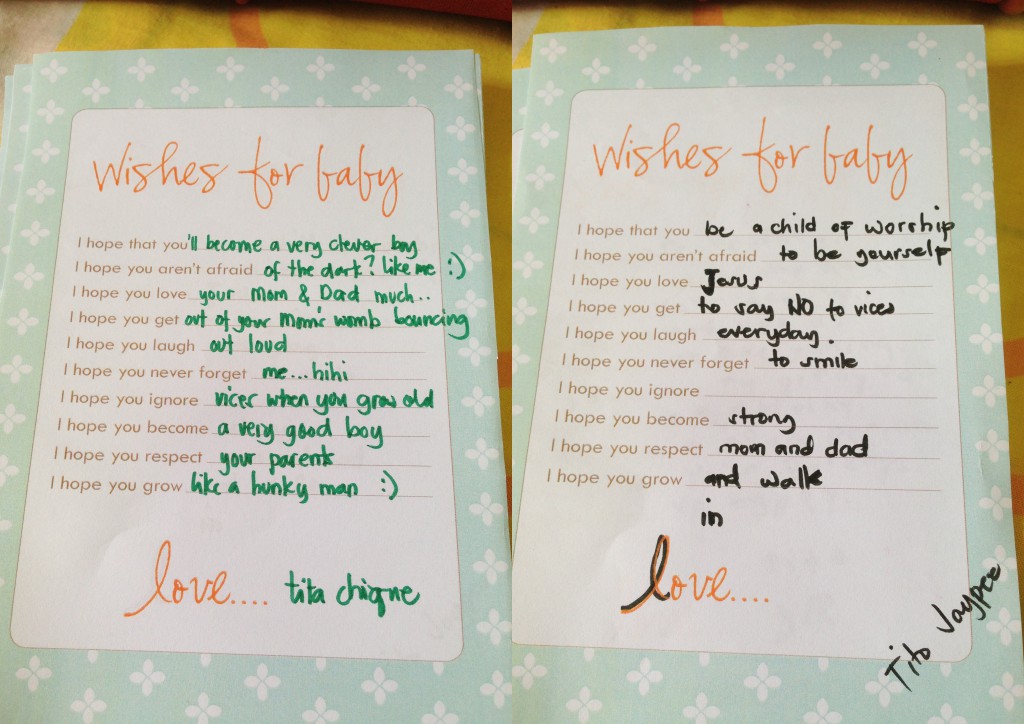 wishes for baby
I hope that you'll become a very clever boy
I hope you aren't afraid of the dark? like me :)
I hope you love your Mom & Dad much..
I hope you get out of your Mom's womb bouncing
I hope you laugh out loud
I hope you never forget me...hihi
I hope you ignore vices when you grow old
I hope you become a very good boy
I hope you respect your parents
I hope you grow like a hunky man :)
love.... tita chique
wishes for baby
I hope that you be a child of worship
I hope you aren't afraid to be yourself
I hope you love Jesus
I hope you get to say NO to vices
I hope you laugh everyday.
I hope you never forget to smile
I hope you ignore
I hope you become strong
I hope you respect mom and dad
I hope you grow and walk
in
love....
Tito Jaypee